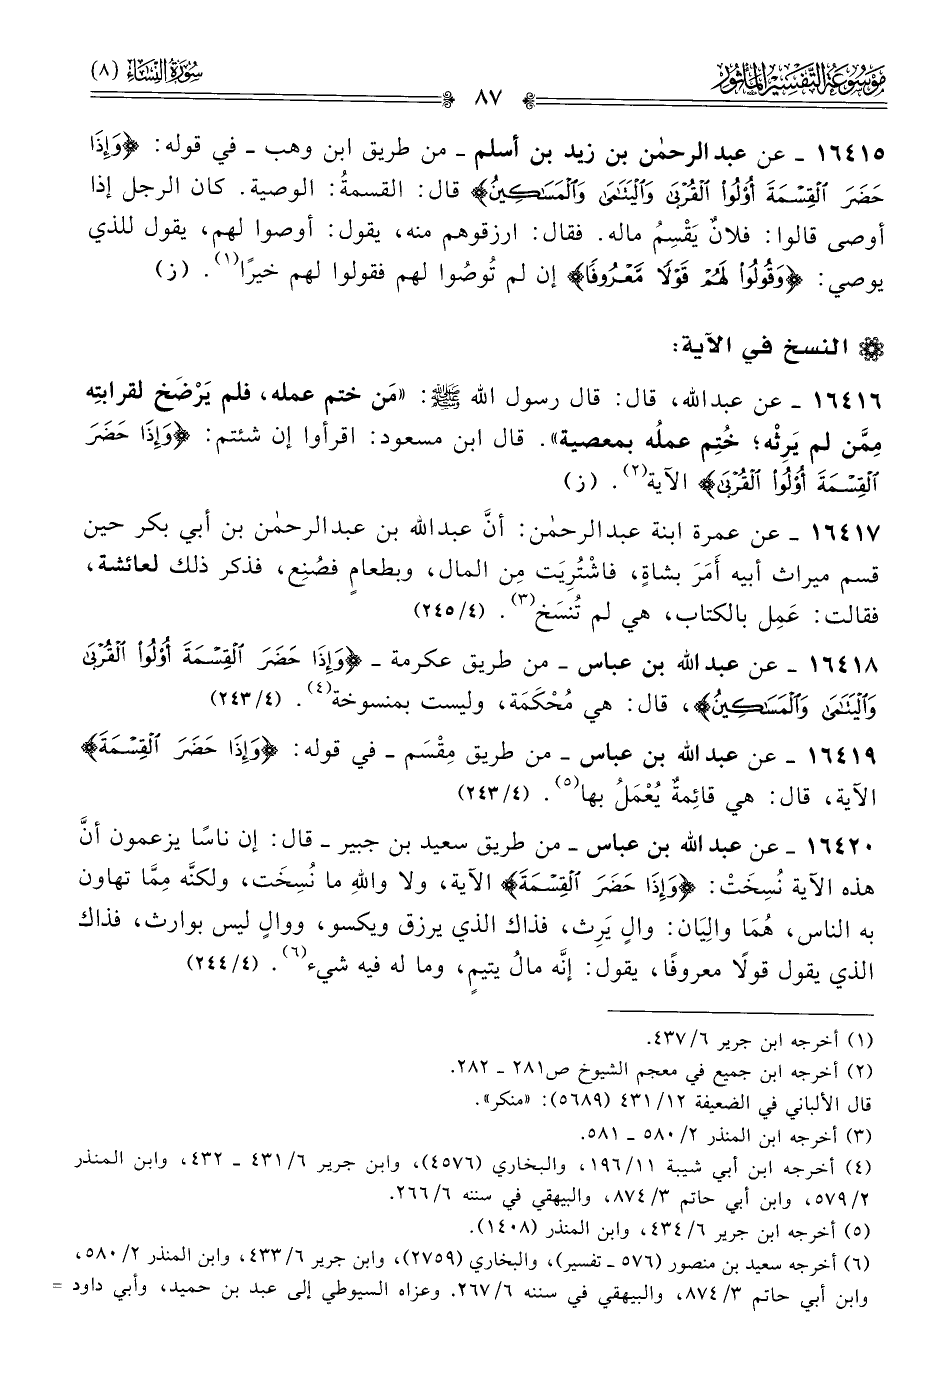 مَوْسُوعَة التَّفْسِيْرِ المَأْثُور
سُورَةُ النِّسَاء (٨)
٨٧
١٦٤١٥ ـ عن عبد الرحمٰن بن زيد بن أسلم ـ من طريق ابن وهب ـ في قوله: ﴿وَإِذَا
حَضَرَ ٱلْقِسْمَةَ أُوْلُواْ ٱلْقُرْبَىٰ وَٱلْيَتَٰمَىٰ وَٱلْمَسَٰكِينُ﴾ قال: القسمةُ: الوصية. كان الرجل إذا
أوصى قالوا: فلانٌ يَقْسِمُ ماله. فقال: ارزقوهم منه، يقول: أوصوا لهم، يقول للذي
يوصي: ﴿وَقُولُواْ لَهُمْ قَوْلًا مَّعْرُوفًا﴾ إن لم تُوصُوا لهم فقولوا لهم خيرًا(١). (ز)
النسخ في الآية:
١٦٤١٦ ـ عن عبد الله، قال: قال رسول الله ﷺ: «مَن ختم عمله، فلم يَرْضَخ لقرابتِه
مِمَّن لم يَرِثْه؛ خُتِم عملُه بمعصية». قال ابن مسعود: اقرأوا إن شئتم: ﴿وَإِذَا حَضَرَ
ٱلْقِسْمَةَ أُوْلُواْ ٱلْقُرْبَىٰ﴾ الآية(٢). (ز)
١٦٤١٧ ـ عن عمرة ابنة عبد الرحمٰن: أنَّ عبد الله بن عبد الرحمٰن بن أبي بكر حين
قسم ميراث أبيه أَمَرَ بشاةٍ، فاشْتُرِيَت مِن المال، وبطعامٍ فصُنِع، فذكر ذلك لعائشة،
فقالت: عَمِل بالكتاب، هي لم تُنسَخ(٣). (٢٤٥/٤)
١٦٤١٨ ـ عن عبد الله بن عباس ـ من طريق عكرمة ـ ﴿وَإِذَا حَضَرَ ٱلْقِسْمَةَ أُوْلُواْ ٱلْقُرْبَىٰ
وَٱلْيَتَٰمَىٰ وَٱلْمَسَٰكِينُ﴾، قال: هي مُحْكَمَة، وليست بمنسوخة(٤). (٢٤٣/٤)
١٦٤١٩ ـ عن عبد الله بن عباس ـ من طريق مِقْسَم ـ في قوله: ﴿وَإِذَا حَضَرَ ٱلْقِسْمَةَ﴾
الآية، قال: هي قائِمةٌ يُعْمَلُ بها(٥). (٢٤٣/٤)
١٦٤٢٠ ـ عن عبد الله بن عباس ـ من طريق سعيد بن جبير ـ قال: إن ناسًا يزعمون أنَّ
هذه الآية نُسِخَتْ: ﴿وَإِذَا حَضَرَ ٱلْقِسْمَةَ﴾ الآية، ولا واللهِ ما نُسِخَت، ولكنَّه مِمَّا تهاون
به الناس، هُمَا والِيَان: والٍ يَرِث، فذاك الذي يرزق ويكسو، ووالٍ ليس بوارث، فذاك
الذي يقول قولًا معروفًا، يقول: إنَّه مالُ يتيمٍ، وما له فيه شيء(٦). (٢٤٤/٤)
(١) أخرجه ابن جرير ٦/ ٤٣٧.
(٢) أخرجه ابن جميع في معجم الشيوخ ص٢٨١ ـ ٢٨٢.
قال الألباني في الضعيفة ١٢/ ٤٣١ (٥٦٨٩): «منكر».
(٣) أخرجه ابن المنذر ٢/ ٥٨٠ ـ ٥٨١.
(٤) أخرجه ابن أبي شيبة ١١/ ١٩٦، والبخاري (٤٥٧٦)، وابن جرير ٦/ ٤٣١ ـ ٤٣٢، وابن المنذر
٢/ ٥٧٩، وابن أبي حاتم ٣/ ٨٧٤، والبيهقي في سننه ٦/ ٢٦٦.
(٥) أخرجه ابن جرير ٦/ ٤٣٤، وابن المنذر (١٤٠٨).
(٦) أخرجه سعيد بن منصور (٥٧٦ ـ تفسير)، والبخاري (٢٧٥٩)، وابن جرير ٦/ ٤٣٣، وابن المنذر ٢/ ٥٨٠،
وابن أبي حاتم ٣/ ٨٧٤، والبيهقي في سننه ٦/ ٢٦٧. وعزاه السيوطي إلى عبد بن حميد، وأبي داود =